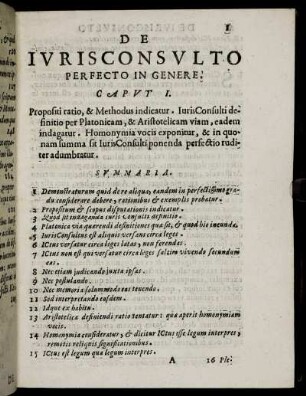 1
DE
IVRISCONSVLTO
PERFECTO IN GENERE.
CAPVT I.
Propositi ratio, & Methodus indicatur. IurisConsulti de-
finitio per Platonicam, & Aristotelicam viam, eadem
indagatur. Homonymia vocis exponitur, & in quo-
nam summa sit IurisConsulti ponenda perfectio rudi-
ter adumbratur.
SVMMARIA.
1 Demum tractaturum quid de re aliqua, eandem in perfectissimo gra-
du considerare debere, rationibus & exemplis probatur.
2 Propositum & scopus disputationis indicatur.
3 Quid sit indaganda Iuris Consulti definitio.
4 Platonica via quaerendi definitionem quae sit, & quod hic ineunda.
5 IurisConsultus est aliquis versans circa leges.
6 ICtus versatur circa leges latas, non ferendas.
7 ICtus non est quo versatur circa leges saltim vivendo secundum
eas.
8 Nec etiam judicando juxta ipsas.
9 Nec postulando.
10 Nec memoria solummodo eas tenendo.
11 Sed interpretando easdem.
12 Idque ex habitu.
13 Aristotelica definiendi ratio tentatur: quae aperit homonymiam
vocis.
14 Homonymia consideratur, & dicitur ICtus esse legum interpres,
remotis reliquis significationibus.
15 ICtus est legum quae legum interpres.
A
16 Ple-